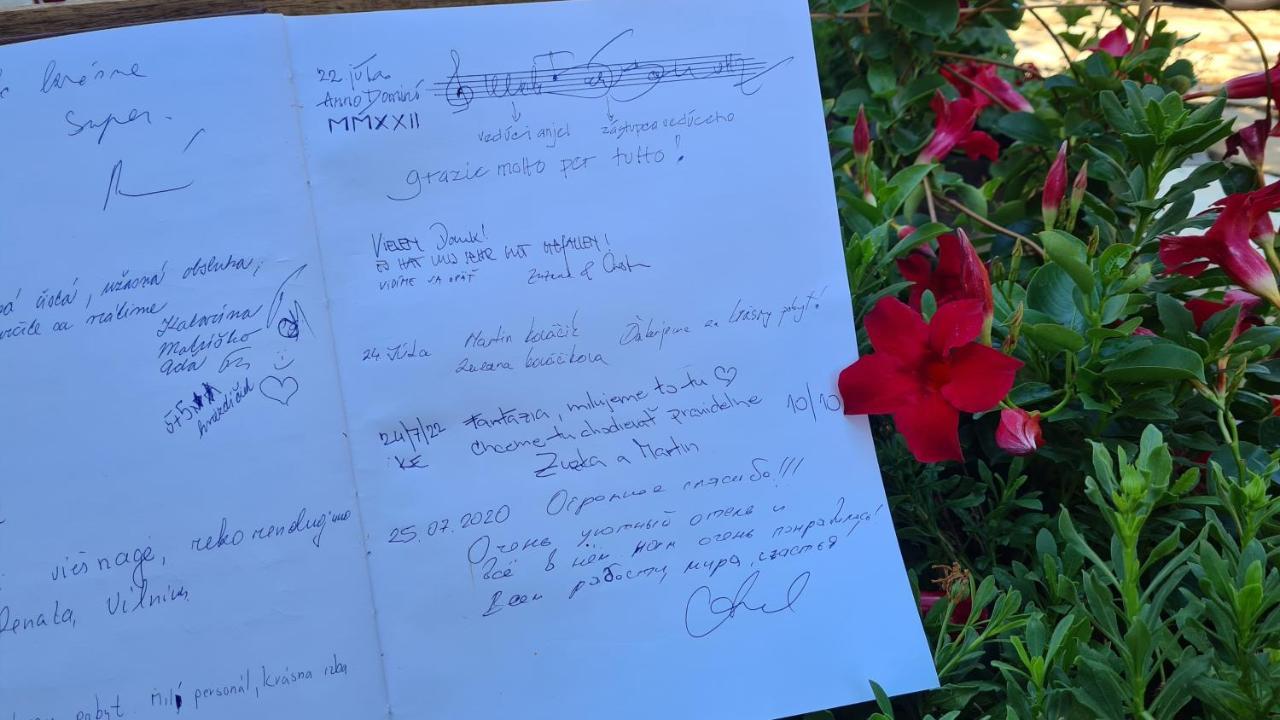 krásne
super.
čistá, úžasná obsluha,
určite sa vrátime
Katarína
Maťíčko
Ada
5+5
hviezdičiek
viešnagė, rekomenduojame
Renata, Vilnius
pobyt. Milý personál, krásna izba
22 júla
Anno Domini
MMXXII
vedúci anjel zástupca vedúceho
grazie molto per tutto!
VIELEN Dank!
ES HAT UNS SEHR GUT GEFALLEN!
VIDÍME SA OPÄŤ
24 Júla Martin Kováčik Ďakujeme za krásny pobyt!
Zuzana Kováčiková
24/7/22 Fantázia, milujeme to tu ♡
KE chceme tu chodievať pravidelne 10/10
Zuzka a Martin
25.07.2020 Огромное спасибо!!!
Очень уютный отель и
всё в нём нам очень понравилось!
Всем радости, мира, счастья